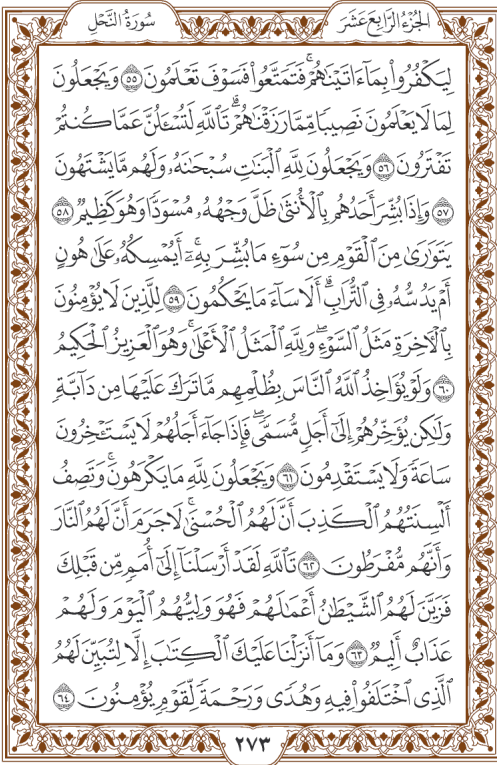 الجُزْءُ الرَّابِعَ عَشَرَ
سُورَةُ النَّحْلِ
لِيَكْفُرُوا۟ بِمَآ ءَاتَيْنَـٰهُمْ ۚ فَتَمَتَّعُوا۟ فَسَوْفَ تَعْلَمُونَ ٥٥ وَيَجْعَلُونَ
لِمَا لَا يَعْلَمُونَ نَصِيبًا مِّمَّا رَزَقْنَـٰهُمْ ۗ تَٱللَّهِ لَتُسْـَٔلُنَّ عَمَّا كُنتُمْ
تَفْتَرُونَ ٥٦ وَيَجْعَلُونَ لِلَّهِ ٱلْبَنَـٰتِ سُبْحَـٰنَهُۥ وَلَهُم مَّا يَشْتَهُونَ
٥٧ وَإِذَا بُشِّرَ أَحَدُهُم بِٱلْأُنثَىٰ ظَلَّ وَجْهُهُۥ مُسْوَدًّا وَهُوَ كَظِيمٌ ٥٨
يَتَوَٰرَىٰ مِنَ ٱلْقَوْمِ مِن سُوٓءِ مَا بُشِّرَ بِهِۦٓ ۚ أَيُمْسِكُهُۥ عَلَىٰ هُونٍ
أَمْ يَدُسُّهُۥ فِى ٱلتُّرَابِ ۗ أَلَا سَآءَ مَا يَحْكُمُونَ ٥٩ لِلَّذِينَ لَا يُؤْمِنُونَ
بِٱلْـَٔاخِرَةِ مَثَلُ ٱلسَّوْءِ ۖ وَلِلَّهِ ٱلْمَثَلُ ٱلْأَعْلَىٰ ۚ وَهُوَ ٱلْعَزِيزُ ٱلْحَكِيمُ
٦٠ وَلَوْ يُؤَاخِذُ ٱللَّهُ ٱلنَّاسَ بِظُلْمِهِم مَّا تَرَكَ عَلَيْهَا مِن دَآبَّةٍ
وَلَـٰكِن يُؤَخِّرُهُمْ إِلَىٰٓ أَجَلٍ مُّسَمًّى ۖ فَإِذَا جَآءَ أَجَلُهُمْ لَا يَسْتَـْٔخِرُونَ
سَاعَةً ۖ وَلَا يَسْتَقْدِمُونَ ٦١ وَيَجْعَلُونَ لِلَّهِ مَا يَكْرَهُونَ ۚ وَتَصِفُ
أَلْسِنَتُهُمُ ٱلْكَذِبَ أَنَّ لَهُمُ ٱلْحُسْنَىٰ ۖ لَا جَرَمَ أَنَّ لَهُمُ ٱلنَّارَ
وَأَنَّهُم مُّفْرَطُونَ ٦٢ تَٱللَّهِ لَقَدْ أَرْسَلْنَآ إِلَىٰٓ أُمَمٍ مِّن قَبْلِكَ
فَزَيَّنَ لَهُمُ ٱلشَّيْطَـٰنُ أَعْمَـٰلَهُمْ فَهُوَ وَلِيُّهُمُ ٱلْيَوْمَ وَلَهُمْ
عَذَابٌ أَلِيمٌ ٦٣ وَمَآ أَنزَلْنَا عَلَيْكَ ٱلْكِتَـٰبَ إِلَّا لِتُبَيِّنَ لَهُمُ
ٱلَّذِى ٱخْتَلَفُوا۟ فِيهِ ۙ وَهُدًى وَرَحْمَةً لِّقَوْمٍ يُؤْمِنُونَ ٦٤
٢٧٣